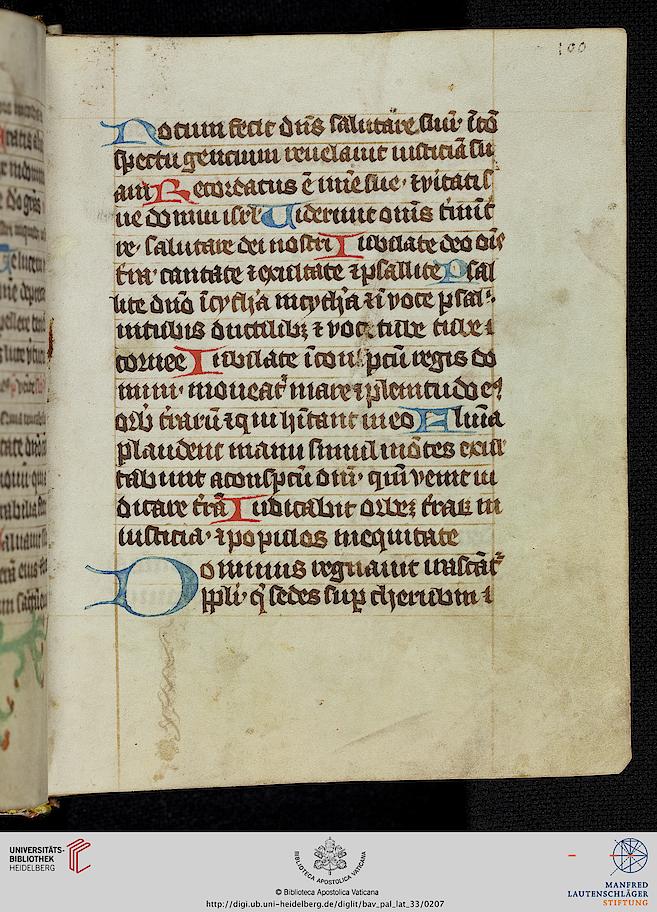 100
Notum fecit dn̄s salutare suū· ī cō
spectu gencium reuelauit iusticiā su
am Recordatus ē mīe sue· ⁊ v̓itatis
ue domui isrl̄ Uiderunt om̄s t̓mīt
re· salutare dei nostri Iubilate deo oīs
t̓ra cantate ⁊ exultate ⁊ psallite Psal
lite dn̄o ī cythar̓a ī cythar̓a ⁊ uoce psal
in tubis ductilibꝫ ⁊ voce tube
cornee Iubilate ī conspc̄tu regis do
mini· moueat̓ mare ⁊ plenitudo eꝰ
orb̓ t̓rarū ⁊ qui hītant in eo Flūīa
plaudent manu simul mōtes exul
tabunt a conspc̄tu dn̄i· qm̄ venit iu
dicare t̓rā Iudicabit orbeꝫ t̓raꝝ in
iusticia· ⁊ populos in equitate
Dominus regnauit irascāt̓
ppl̄i· q̓ sedes suꝑ cherubin ⁊
UNIVERSITÄTS-
BIBLIOTHEK
HEIDELBERG
BIBLIOTECA APOSTOLICA VATICANA
© Biblioteca Apostolica Vaticana
http://digi.ub.uni-heidelberg.de/diglit/bav_pal_lat_33/0207
MANFRED
LAUTENSCHLÄGER
STIFTUNG